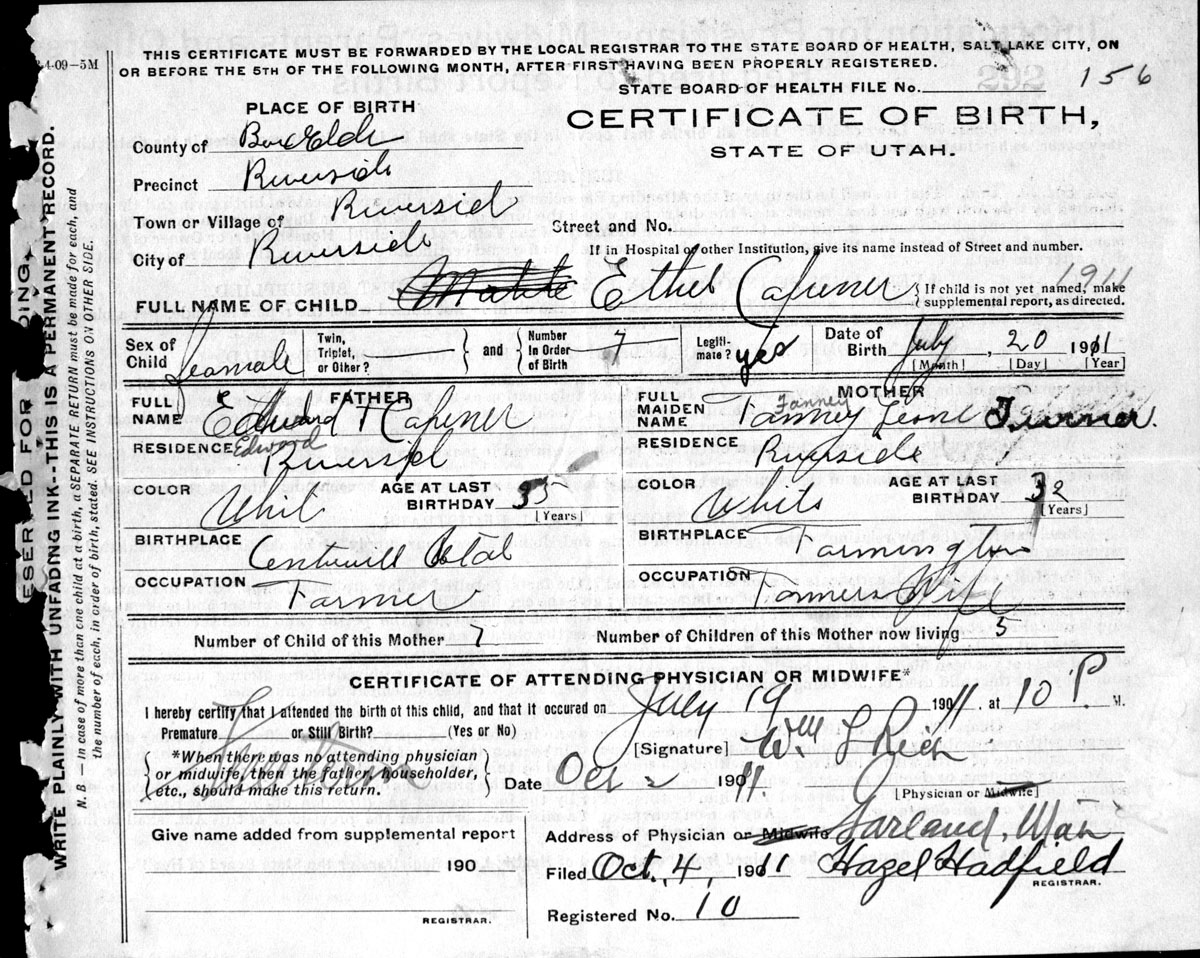 3-4-09-5M
THIS CERTIFICATE MUST BE FORWARDED BY THE LOCAL REGISTRAR TO THE STATE BOARD OF HEALTH, SALT LAKE CITY, ON
OR BEFORE THE 5TH OF THE FOLLOWING MONTH, AFTER FIRST HAVING BEEN PROPERLY REGISTERED.
STATE BOARD OF HEALTH FILE No. 156
292
PLACE OF BIRTH
CERTIFICATE OF BIRTH,
STATE OF UTAH.
County of Box Elder
Precinct Riverside
Town or Village of Riverside
Street and No.
City of Riverside
If in Hospital or other Institution, give its name instead of Street and number.
1911
FULL NAME OF CHILD Ethel Capener { If child is not yet named, make
supplemental report, as directed.
Sex of Child Feamale
Twin, Triplet, or Other? } and { Number In Order of Birth 7
Legiti-mate? yes
Date of Birth July, 20 1911
[Month] [Day] [Year]
FATHER
FULL NAME Edward T Capener
Edward
RESIDENCE Riverside
COLOR White
AGE AT LAST BIRTHDAY 35
[Years]
BIRTHPLACE Centervill Utah
OCCUPATION Farmer
MOTHER
FULL MAIDEN NAME Fanney Leone Turner.
Fanney
RESIDENCE Riverside
COLOR White
AGE AT LAST BIRTHDAY 32
[Years]
BIRTHPLACE Farmington
OCCUPATION Farmers Wife
Number of Child of this Mother 7
Number of Children of this Mother now living 5
CERTIFICATE OF ATTENDING PHYSICIAN OR MIDWIFE*
I hereby certify that I attended the birth of this child, and that it occured on July 19 1911. at 10 P. M.
Premature or Still Birth? (Yes or No)
[Signature] Wm L Rich
*When there was no attending physician
or midwife, then the father, householder,
etc., should make this return.
Date Oct 2 1911.
[Physician or Midwife]
Give name added from supplemental report
190
REGISTRAR.
Address of Physician or Midwife Garland, Utah
Filed Oct. 4, 1911 Hazel Hadfield
REGISTRAR.
Registered No. 10
ESERVED FOR DING
WRITE PLAINLY WITH UNFADING INK--THIS IS A PERMANENT RECORD.
N. B.— In case of more than one child at a birth, a SEPARATE RETURN must be made for each, and
the number of each, in order of birth, stated. SEE INSTRUCTIONS ON OTHER SIDE.